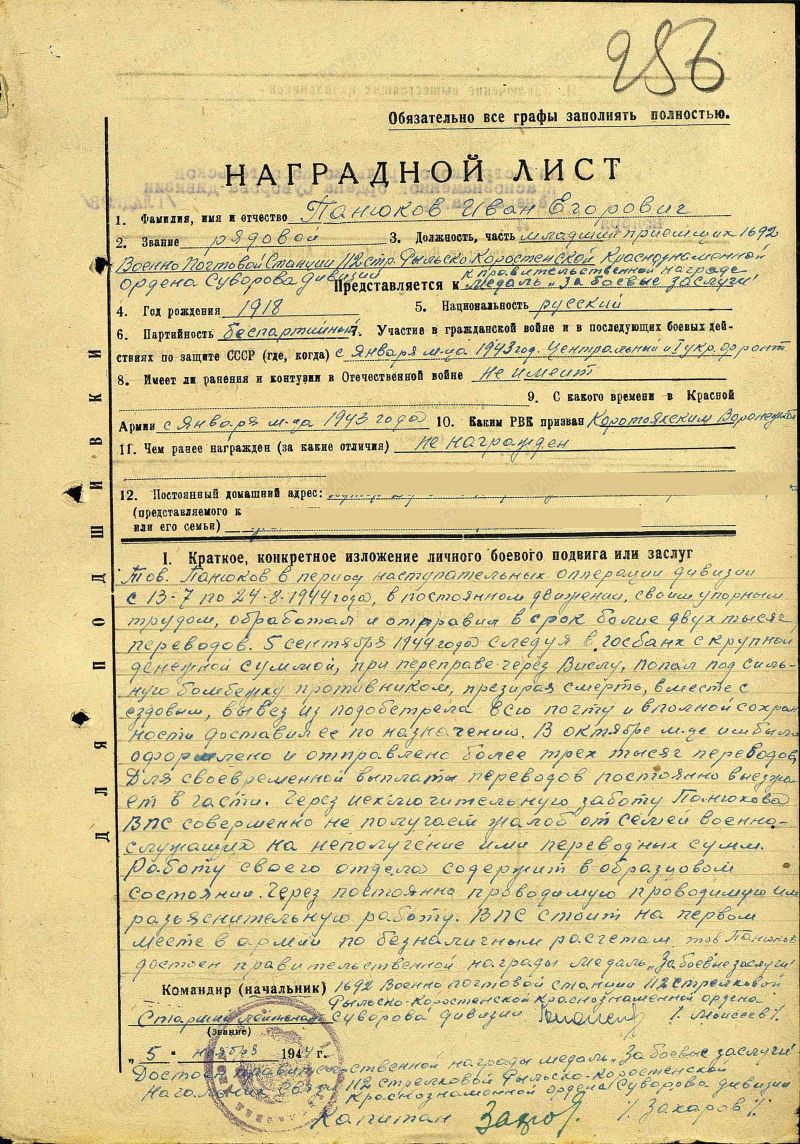 256
Обязательно все графы заполнять полностью.
НАГРАДНОЙ ЛИСТ
1. Фамилия, имя и отчество Панюков Иван Егорович
2. Звание рядовой 3. Должность, часть младший приемщик 1692
Военно Почтовой Станции 112 стр. Рыльско-Коростенской Краснознаменной
ордена Суворова дивизии
к правительственной награде
Представляется к медаль „За боевые заслуги"
4. Год рождения 1918 5. Национальность русский
6. Партийность беспартийный 7. Участие в гражданской войне и в последующих боевых дей-
ствиях по защите СССР (где, когда) с января м-ца 1943 год. Центральный и I укр. фронт
8. Имеет ли ранения и контузии в Отечественной войне не имеет
9. С какого времени в Красной
Армии с января м-ца 1943 года 10. Каким РВК призван Коротоякским
11. Чем ранее награжден (за какие отличия) не награжден
12. Постоянный домашний адрес:
(представляемого к
или его семьи)
ДЛЯ ПОДШИВКИ
I. Краткое, конкретное изложение личного боевого подвига или заслуг
Тов. Панюков в период наступательных опперации дивизии
с 13-7 по 24-8-1944 года, в постоянном движении, своим упорным
трудом, обработал и отправил в срок более двух тысяч
переводов. 5 сентября 1944 года следуя в госбанк с крупной
денежной суммой, при переправе через Вислу, попал под силь-
ную бомбежку противником, презирая смерть, вместе с
ездовым, вывез из под обстрела всю почту и в полной сохран
ности доставил ее по назначению. В октябре м-це им было
оформлено и отправлено более трех тысяч переводов
Для своевременной выплаты переводов постоянно выезжа-
ет в части. Через исключительную заботу Панюкова
ВПС соверменно не получает жалоб от семей военно-
служащих на неполучение ими переводных сумм.
Работу своего отдела содержит в образцовом
состоянии. Через постоянно проводимую проводимую им
разъяснительную работу. ВПС стоит на первом
месте в армии по безналичным расчетам. тов Панюков
достоен правительственной награды медаль „За боевые заслуги"
Командир (начальник) 1692 Военно почтовой станции 112 стрелковой
Рыльско-Коростенской краснознаменной ордена
Старший лейтенант Суворова дивизии /. Моисеев /.
(звание)
„5" ноября 1944 г.
Достоен правительственной награды медаль „За боевые заслуги"
Начальник связи 112 стрелковой Рыльско-Коростенской
Краснознаменной ордена Суворова дивизии
Капитан /. Захаров /.